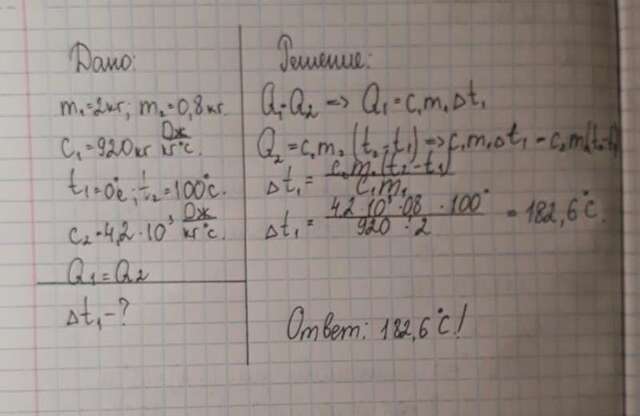 Дано:
m₁=2кг; m₂=0,8кг.
c₁=920кг Дж/кг°c.
t₁=0°c; t₂=100°c.
c₂=4,2·10³ Дж/кг°c.
Q₁=Q₂
Δt₁-?
Решение:
Q₁=Q₂ => Q₁=c₁m₁Δt₁
Q₂=c₂m₂(t₂-t₁)=>c₁m₁Δt₁=c₂m₂(t₂-t₁)
Δt₁= c₂m₂(t₂-t₁)/c₁m₁
Δt₁= 4,2·10³·08·100°/920·2 =182,6°C.
Ответ: 182,6°C!